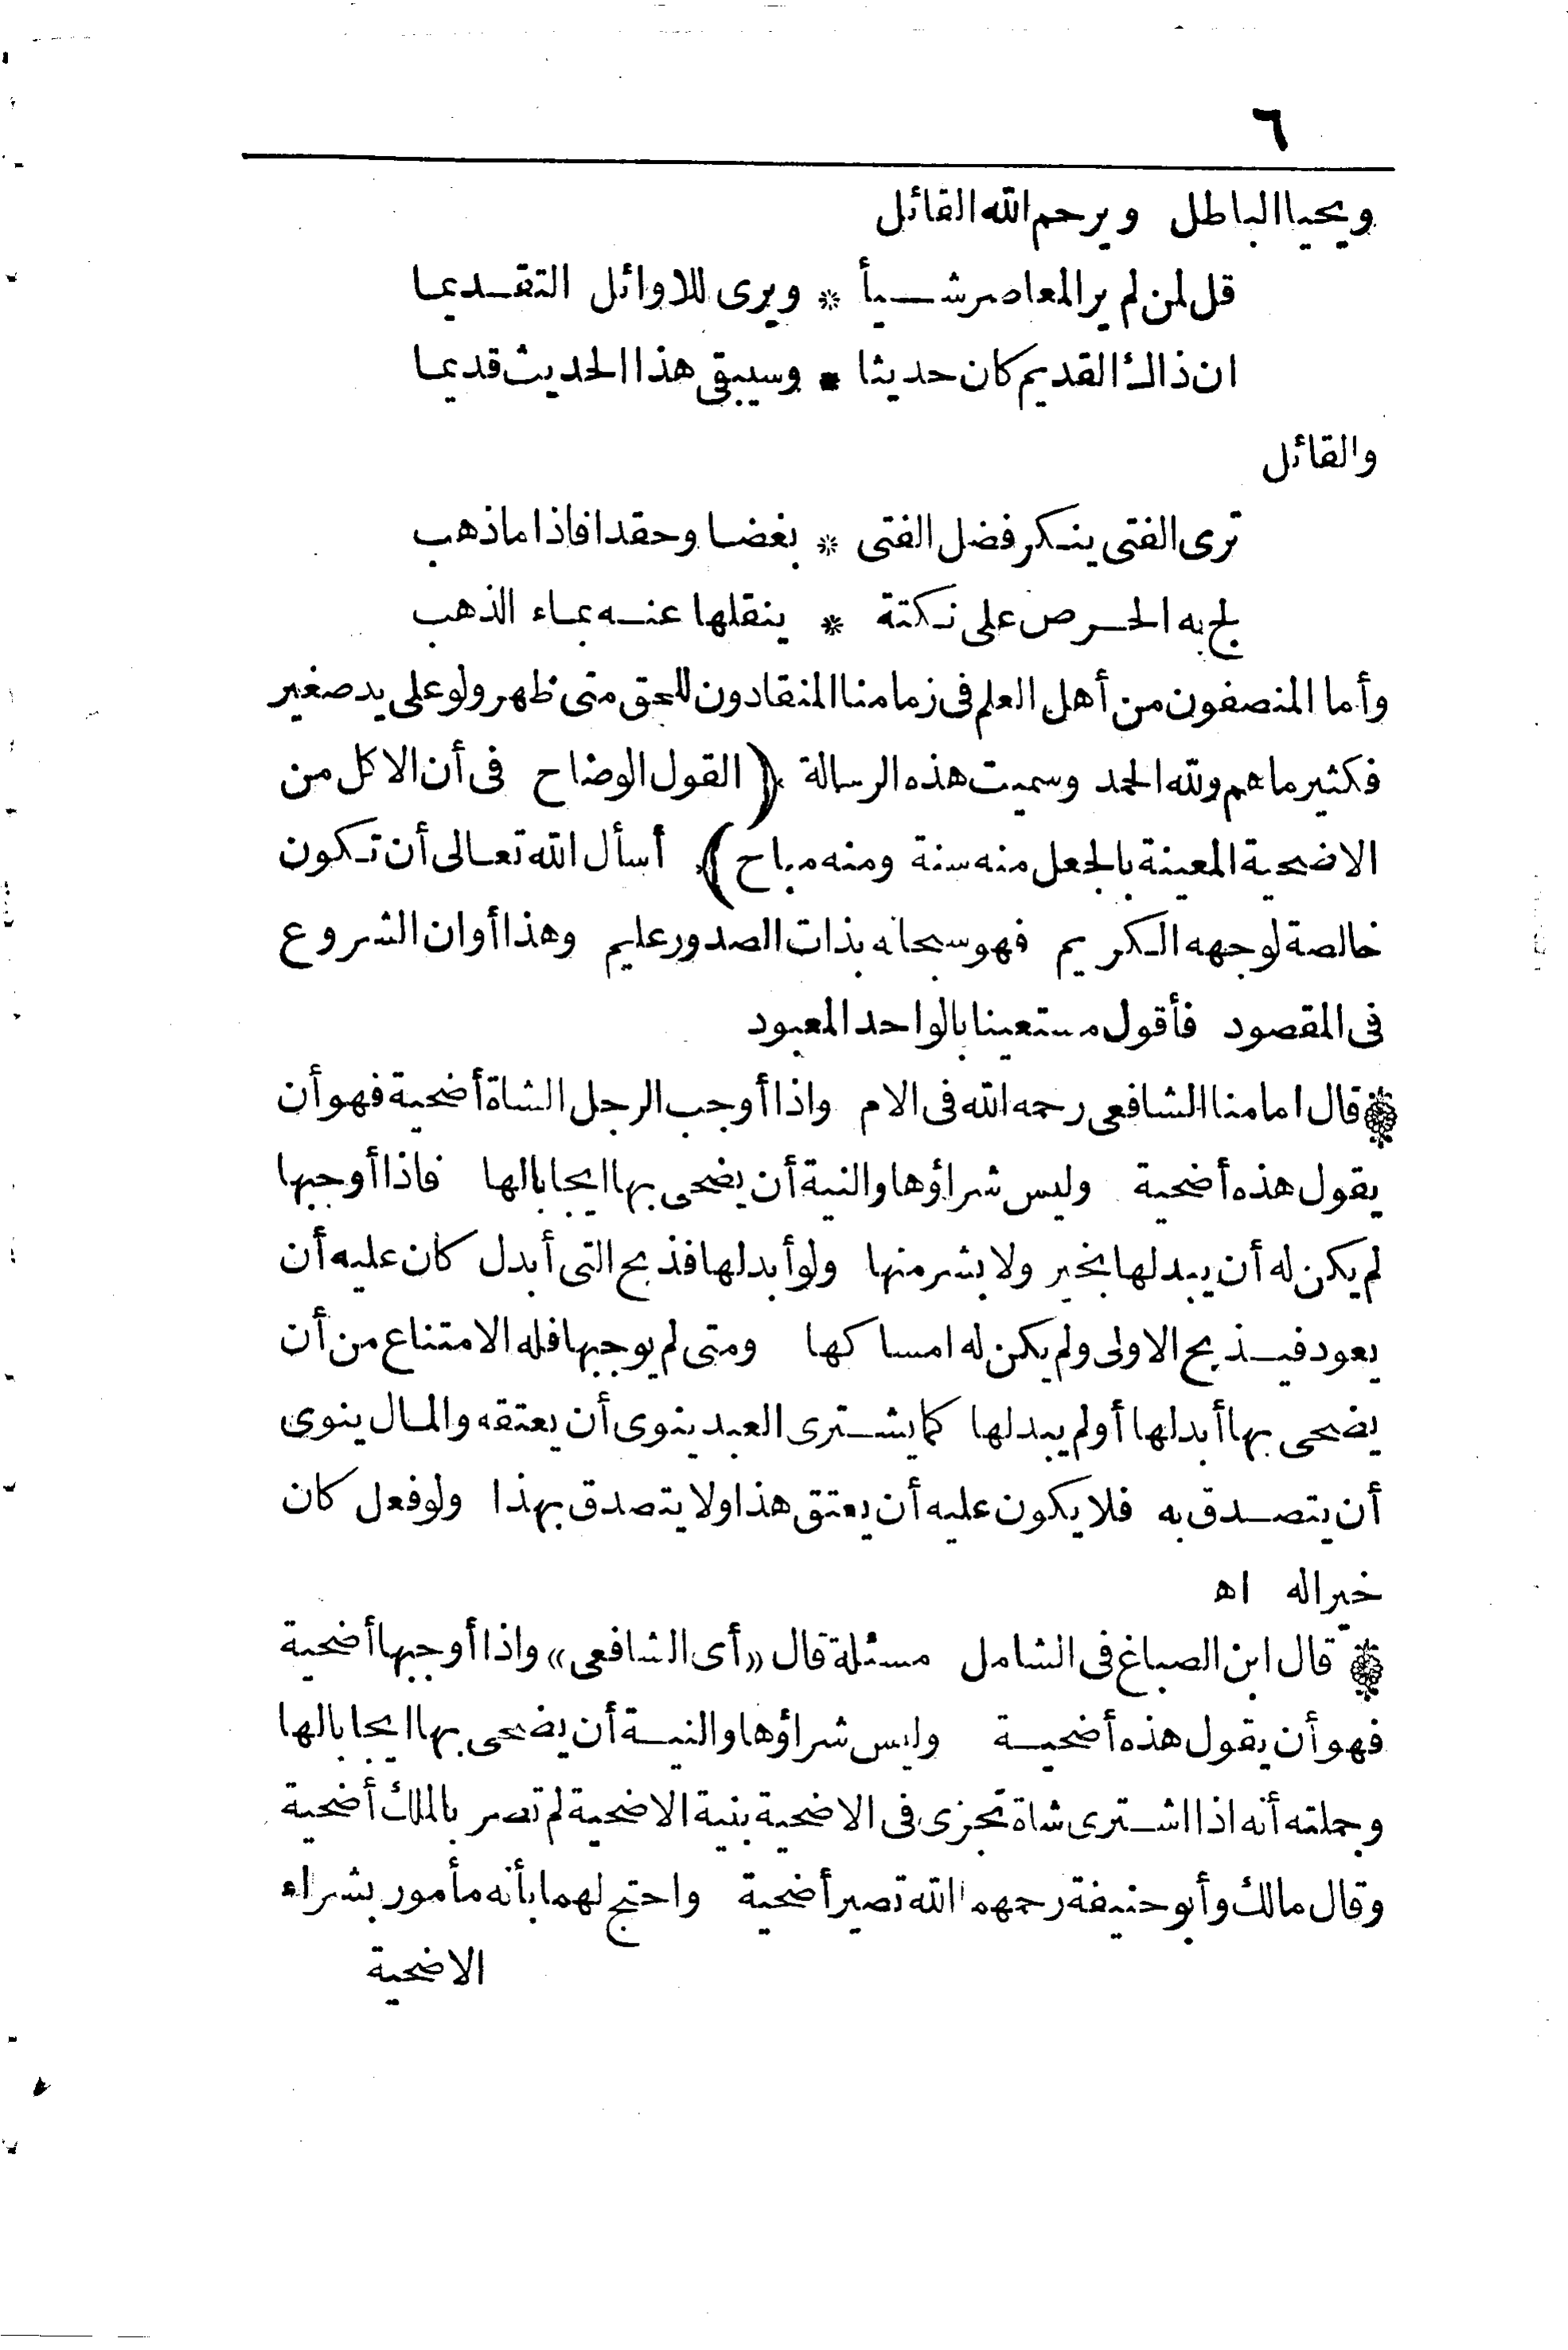 ٦
ويحيا الباطل ويرحم الله القائل
قل لمن لم ير المعاصر شيأ * ويرى للاوائل التقديما
ان ذاك القديم كان حديثا * وسيبقى هذا الحديث قديما
والقائل
ترى الفتى ينكر فضل الفتى * بغضا وحقدا فاذا ما ذهب
لج به الحرص على نكتة * ينقلها عنه بماء الذهب
وأما المنصفون من أهل العلم فى زمامنا المنقادون للحق متى ظهر ولو على يد صغير
فكثير ما هم ولله الحمد وسميت هذه الرسالة ﴿ القول الوضاح فى أن الاكل من
الاضحية المعينة بالجعل منه سنة ومنه مباح ﴾ أسأل الله تعالى أن تكون
خالصة لوجهه الكريم فهو سبحانه بذات الصدور عليم وهذا أوان الشروع
فى المقصود فأقول مستعينا بالواحد المعبود
قال امامنا الشافعى رحمه الله فى الام واذا أوجب الرجل الشاة أضحية فهو أن
يقول هذه أضحية وليس شراؤها والنية أن يضحى بها ايجابا لها فاذا أوجبها
لم يكن له أن يبدلها بخير ولا بشر منها ولو أبدلها فذبح التى أبدل كان عليه أن
يعود فيذبح الاولى ولم يكن له امساكها ومتى لم يوجبها فله الامتناع من أن
يضحى بها أبدلها أو لم يبدلها كما يشترى العبد ينوى أن يعتقه والمال ينوى
أن يتصدق به فلا يكون عليه أن يعتق هذا ولا يتصدق بهذا ولو فعل كان
خيرا له اه
قال ابن الصباغ فى الشامل مسئلة قال «أى الشافعى» واذا أوجبها أضحية
فهو أن يقول هذه أضحية وليس شراؤها والنية أن يضحى بها ايجابا لها
وجملته أنه اذا اشترى شاة تجزى فى الاضحية بنية الاضحية لم تصر بالملك أضحية
وقال مالك وأبو حنيفة رحمهما الله تصير أضحية واحتج لهما بأنه مأمور بشراء
الاضحية